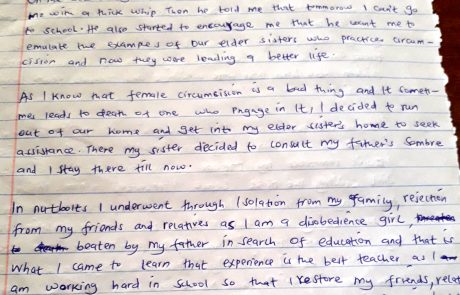 me with a thick whip Then he told me that tommorow I can't go
to school. He also started to encourage me that he want me to
emulate the exampes of our elder sisters who practice circum-
cission and now they were leading a better life.
As I know that female circumcision is a bad thing and It somet-
mes leads to death of one who engage in It, I decided to run
out of our home and get into my elder sister's home to seek
assistance. There my sister decided to consult my father's Sombre
and I stay there till now.
In nutbolts I underwent through Isolation from my family, rejection
from my friends and relatives as I am a disobedience girl,
beaten by my father in search of education and that is
what I came to learn that experience is the best teacher as I
am working hard in school so that I restore my friends, relat